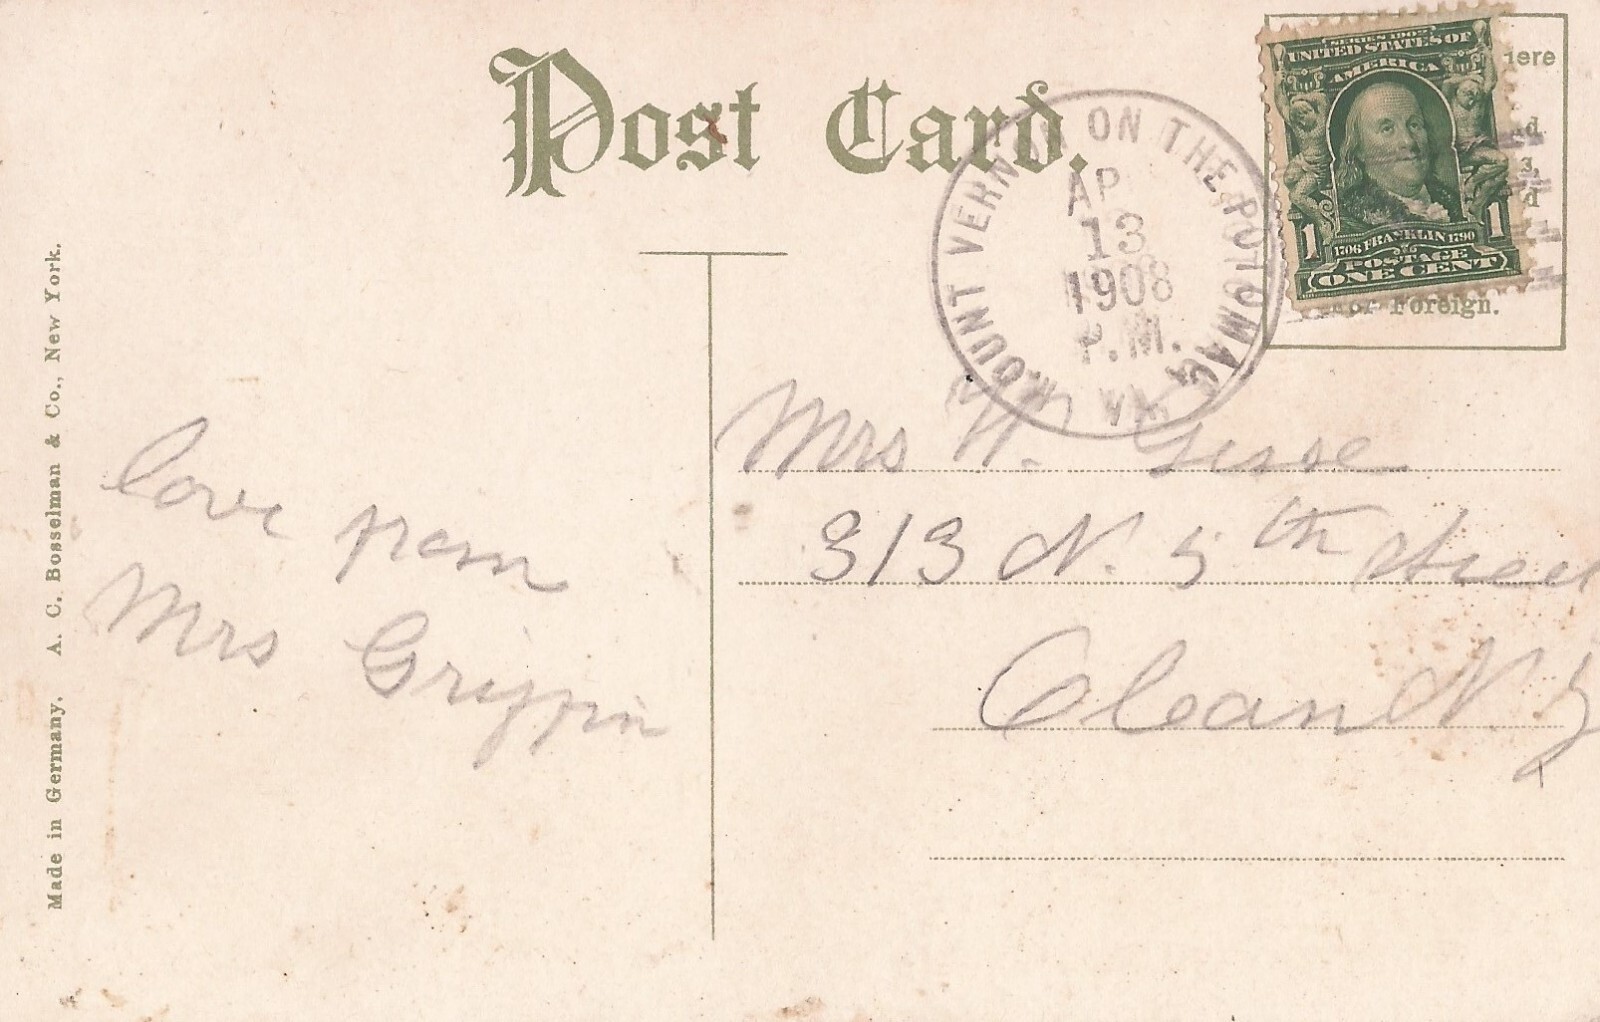 Post Card.
MOUNT VERNON ON THE POTOMAC
VA.
AP
13
1908
P.M.
SERIES 1902
UNITED STATES OF
AMERICA
1706 FRANKLIN 1790
1 1
POSTAGE
ONE CENT
Here
or Foreign.
Mrs W.
313 N. 5th street
Olean N.Y
love from
Mrs Grippin
Made in Germany. A. C. Bosselman & Co., New York.